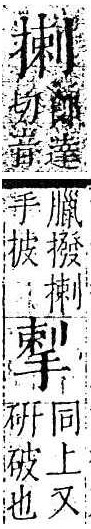 揦
郎達
切音
臘撥揦
手披
揧
同上又
研破也